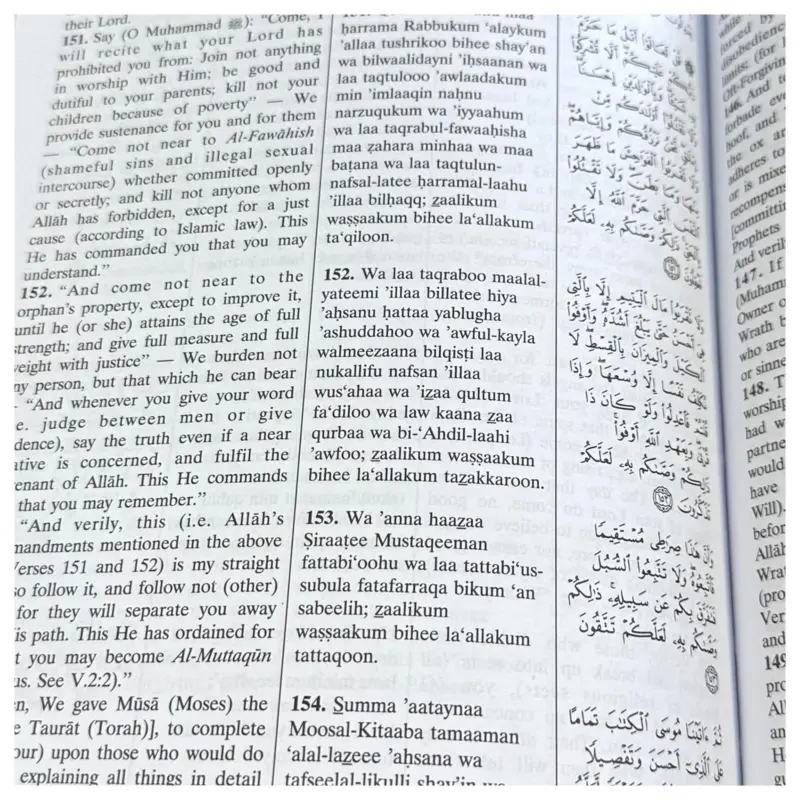 their Lord.
151. Say (O Muhammad ﷺ): "Come, I
will recite what your Lord has
prohibited you from: Join not anything
in worship with Him; be good and
dutiful to your parents; kill not your
children because of poverty" — We
provide sustenance for you and for them
— "Come not near to Al-Fawâhish
(shameful sins and illegal sexual
intercourse) whether committed openly
or secretly; and kill not anyone whom
Allâh has forbidden, except for a just
cause (according to Islamic law). This
He has commanded you that you may
understand."
152. "And come not near to the
orphan's property, except to improve it,
until he (or she) attains the age of full
strength; and give full measure and full
weight with justice" — We burden not
ny person, but that which he can bear
"And whenever you give your word
e. judge between men or give
dence), say the truth even if a near
ative is concerned, and fulfil the
enant of Allâh. This He commands
that you may remember."
"And verily, this (i.e. Allâh's
mandments mentioned in the above
Verses 151 and 152) is my straight
so follow it, and follow not (other)
for they will separate you away
is path. This He has ordained for
t you may become Al-Muttaqûn
us. See V.2:2)."
n, We gave Mûsâ (Moses) the
e Taurât (Torah)], to complete
our) upon those who would do
explaining all things in detail
ḥarrama Rabbukum 'alaykum
'allaa tushrikoo bihee shay'an
wa bilwaalidayni 'iḥsaanan wa
laa taqtulooo 'awlaadakum
min 'imlaaqin naḥnu
narzuqukum wa 'iyyaahum
wa laa taqrabul-fawaaḥisha
maa ẓahara minhaa wa maa
baṭana wa laa taqtulun-
nafsal-latee ḥarramal-laahu
'illaa bilḥaqq; z̲aalikum
waṣṣaakum bihee la‘allakum
ta‘qiloon.
152. Wa laa taqraboo maalal-
yateemi 'illaa billatee hiya
'aḥsanu ḥattaa yablugha
'ashuddahoo wa 'awful-kayla
walmeezaana bilqisṭi laa
nukallifu nafsan 'illaa
wus‘ahaa wa 'iz̲aa qultum
fa‘diloo wa law kaana z̲aa
qurbaa wa bi-‘Ahdil-laahi
'awfoo; z̲aalikum waṣṣaakum
bihee la‘allakum taz̲akkaroon.
153. Wa 'anna haaz̲aa
Ṣiraaṭee Mustaqeeman
fattabi‘oohu wa laa tattabi‘us-
subula fatafarraqa bikum ‘an
sabeelih; z̲aalikum
waṣṣaakum bihee la‘allakum
tattaqoon.
154. S̲umma 'aataynaa
Moosal-Kitaaba tamaaman
'alal-laz̲eee 'aḥsana wa
tafseelal-likulli shay'in
قُلْ تَعَالَوْا أَتْلُ مَا حَرَّمَ
رَبُّكُمْ عَلَيْكُمْ أَلَّا تُشْرِكُوا
بِهِ شَيْئًا وَبِالْوَالِدَيْنِ إِحْسَانًا
وَلَا تَقْتُلُوا أَوْلَادَكُم مِّنْ
إِمْلَاقٍ نَّحْنُ نَرْزُقُكُمْ وَإِيَّاهُمْ
وَلَا تَقْرَبُوا الْفَوَاحِشَ مَا ظَهَرَ
مِنْهَا وَمَا بَطَنَ وَلَا تَقْتُلُوا
النَّفْسَ الَّتِي حَرَّمَ اللَّهُ إِلَّا
بِالْحَقِّ ذَٰلِكُمْ وَصَّىٰكُم بِهِ لَعَلَّكُمْ
تَعْقِلُونَ ١٥١
وَلَا تَقْرَبُوا مَالَ الْيَتِيمِ إِلَّا بِالَّتِي
هِيَ أَحْسَنُ حَتَّىٰ يَبْلُغَ أَشُدَّهُ وَأَوْفُوا
الْكَيْلَ وَالْمِيزَانَ بِالْقِسْطِ لَا
نُكَلِّفُ نَفْسًا إِلَّا وُسْعَهَا وَإِذَا
قُلْتُمْ فَاعْدِلُوا وَلَوْ كَانَ ذَا
قُرْبَىٰ وَبِعَهْدِ اللَّهِ أَوْفُوا
ذَٰلِكُمْ وَصَّىٰكُم بِهِ لَعَلَّكُمْ
تَذَكَّرُونَ ١٥٢
وَأَنَّ هَٰذَا صِرَٰطِي مُسْتَقِيمًا
فَاتَّبِعُوهُ وَلَا تَتَّبِعُوا السُّبُلَ
فَتَفَرَّقَ بِكُمْ عَن سَبِيلِهِ ذَٰلِكُمْ
وَصَّىٰكُم بِهِ لَعَلَّكُمْ تَتَّقُونَ
١٥٣
ثُمَّ ءَاتَيْنَا مُوسَى الْكِتَٰبَ تَمَامًا
عَلَى الَّذِي أَحْسَنَ وَتَفْصِيلًا
while
forced by
disobedienc
limits: (for
Oft-Forgivin
146. And to
forbade eve
hoof, and
the ox ar
adheres to
or is mixe
recompens
[committin
Prophets
And veril
147. If
(Muham
Owner o
Wrath b
who are
or sinne
148. T
worship
had w
partne
would
have
Will).
befor
Allâh
Wrat
(pro
Ver
and
149
pro
Al
an
H